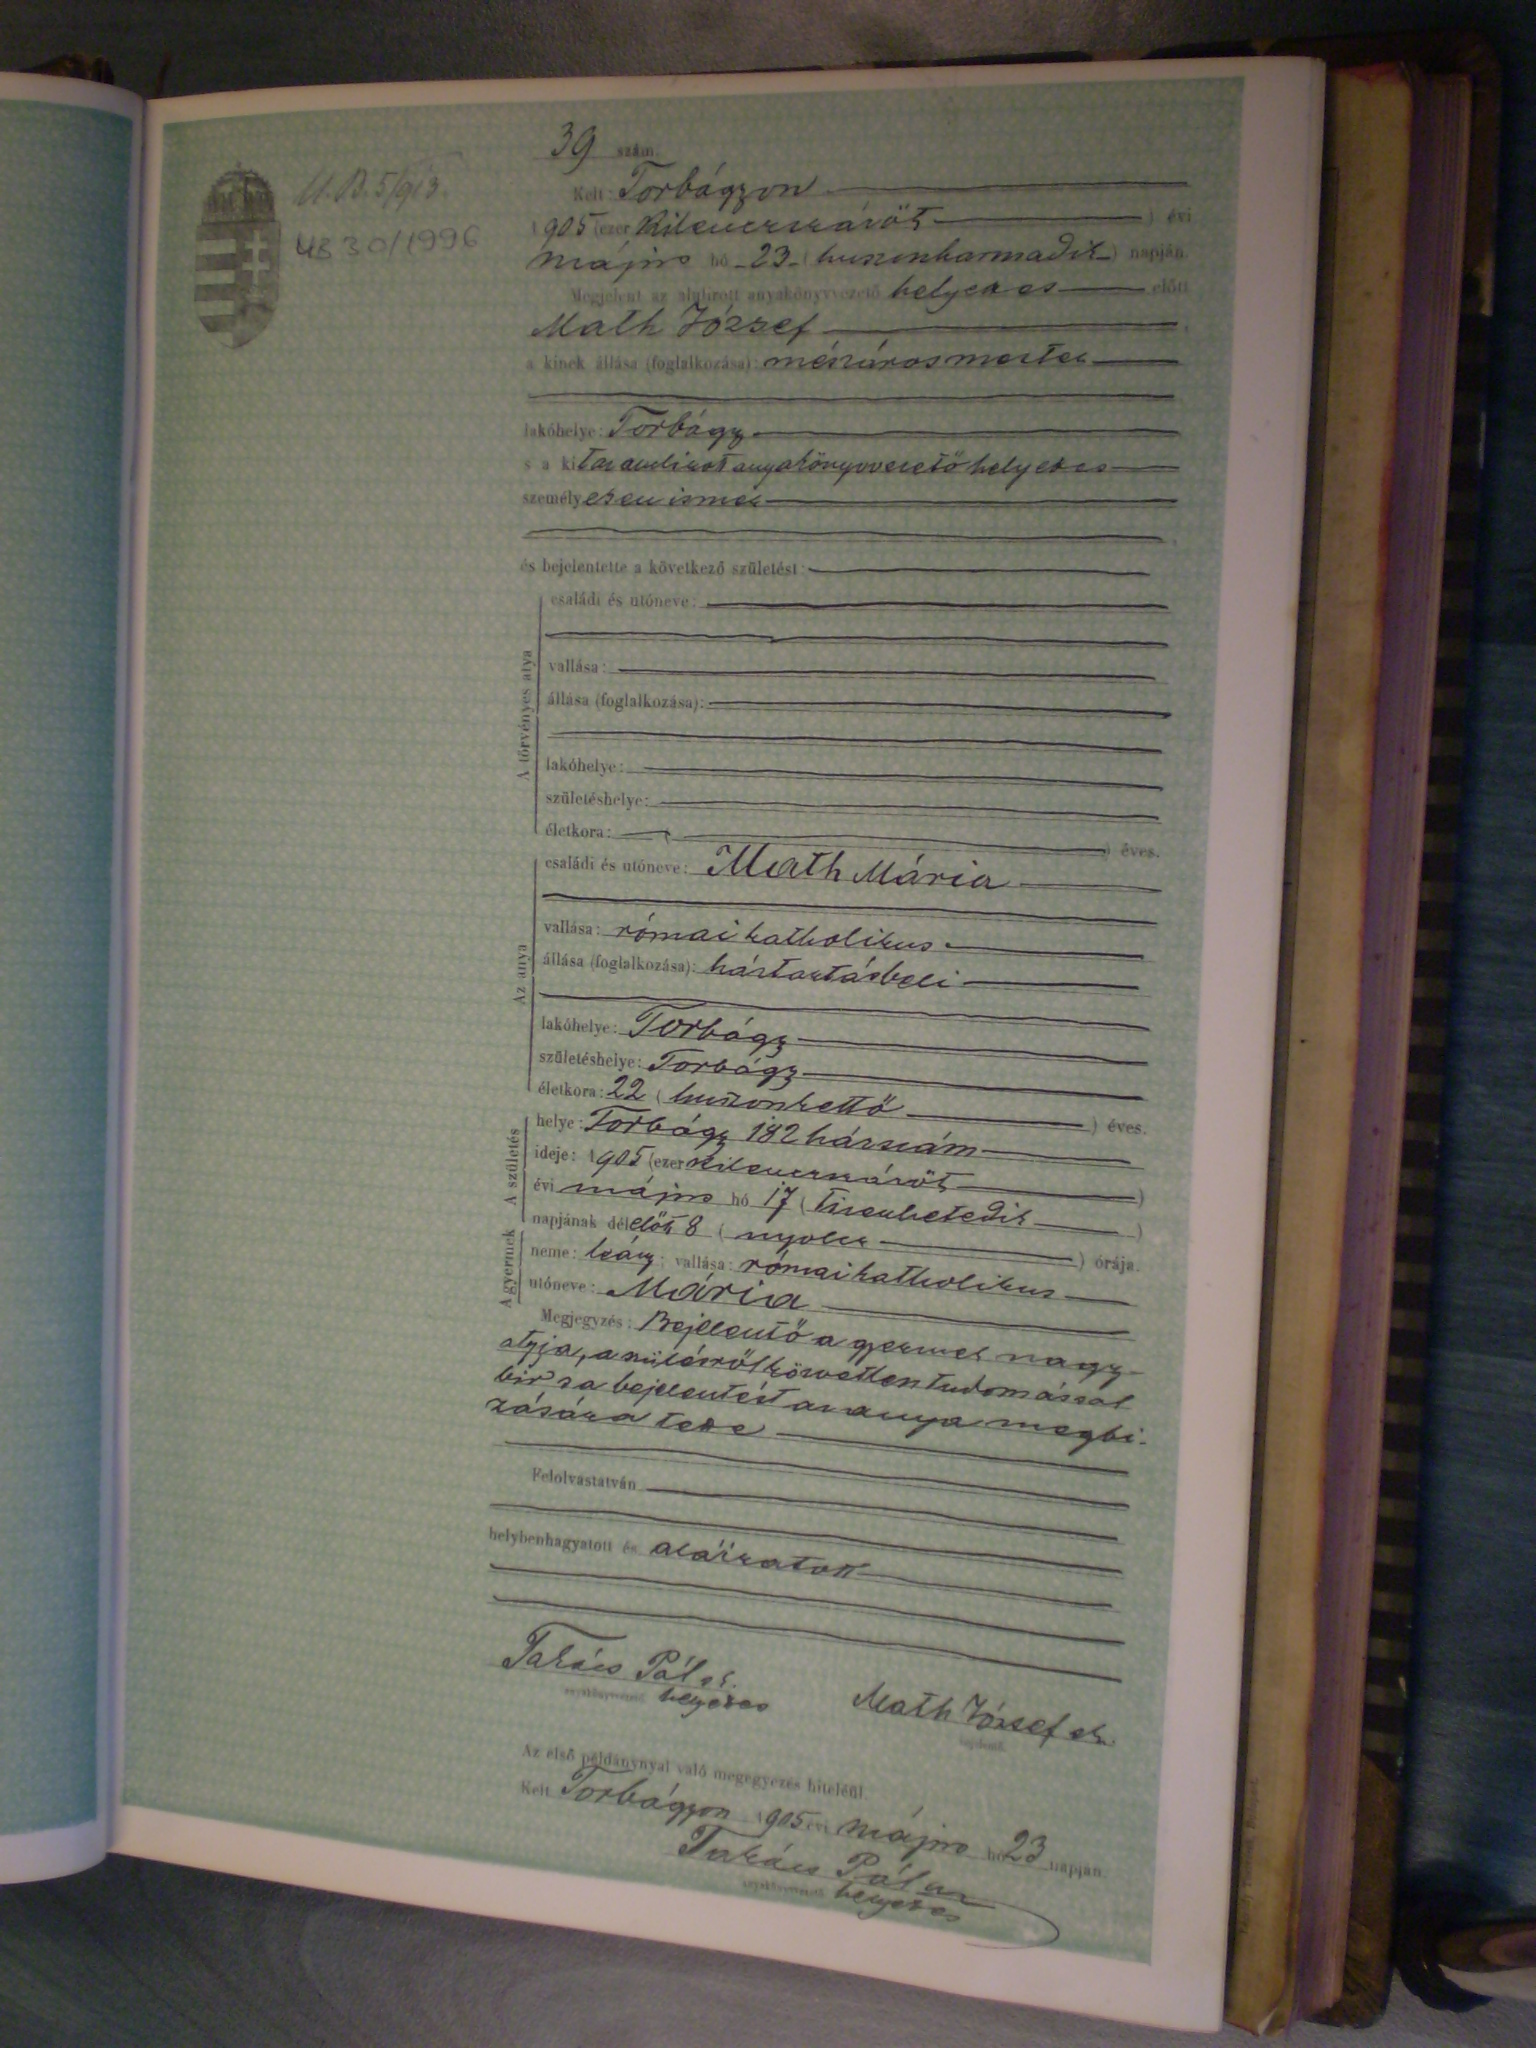 39 szám.
Kelt: Torbágyon
1905 (ezer kilencszázöt) évi
május hó 23 (huszonharmadik) napján.
Megjelent az alulirott anyakönyvvezető helyettes előtt
Math József
a kinek állása (foglalkozása): mészárosmester
lakóhelye: Torbágy
s a kit az alulirott anyakönyvvezető helyettes
személyesen ismer
és bejelentette a következő születést:
A törvényes atya
családi és utóneve:
vallása:
állása (foglalkozása):
lakóhelye:
születéshelye:
életkora: ( ) éves.
Az anya
családi és utóneve: Math Mária
vallása: római katholikus
állása (foglalkozása): háztartásbeli
lakóhelye: Torbágy
születéshelye: Torbágy
életkora: 22 (huszonkettő) éves.
A születés
helye: Torbágy 182 házszám
ideje: 1905 (ezer kilencszázöt)
évi május hó 17 (tizenhetedik)
napjának délelőtt 8 (nyolcz) órája.
A gyermek
neme: leány; vallása: római katholikus
utóneve: Mária
Megjegyzés: Bejelentő a gyermek nagy-
atyja, a szülésről közvetlen tudomással
bir s a bejelentést az anya megbi-
zására tette
Felolvastatván
helybenhagyatott és aláiratott
Takács Pál sk. Math József sk.
anyakönyvvezető helyettes bejelentő
Az első példánynyal való megegyezés hiteléül.
Kelt Torbágyon 1905 évi május hó 23 napján.
Takács Pál
anyakönyvvezető helyettes
UB 30/1996